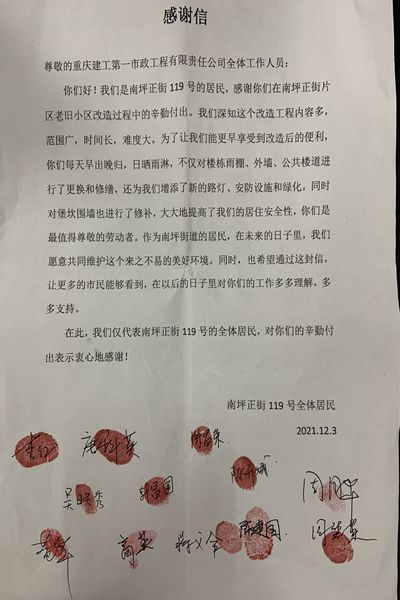 感谢信
尊敬的重庆建工第一市政工程有限责任公司全体工作人员：
你们好！我们是南坪正街 119 号的居民，感谢你们在南坪街片
区老旧小区改造过程中的辛勤付出。我们深知这个改造工程内容多，
范围广，时间长，难度大。为了让我们能更早享受到改造后的便利，
你们每天早出晚归，日晒雨淋，不仅对楼栋雨棚、外墙、公共楼道进
行了更换和修缮，还为我们增添了新的路灯、安防设施和绿化，同时
对堡坎围墙也进行了修补，大大地提高了我们的居住安全性，你们是
最值得尊敬的劳动者。作为南坪街道的居民，在未来的日子里，我们
愿意共同维护这个来之不易的美好环境。同时，也希望通过这封信，
让更多的市民能够看到，在以后的日子里对你们的工作多多理解，多
多支持。
在此，我们仅代表南坪正街 119 号的全体居民，对你们的辛勤付
出表示衷心地感谢！
南坪正街 119 号全体居民
2021.12.3
高英